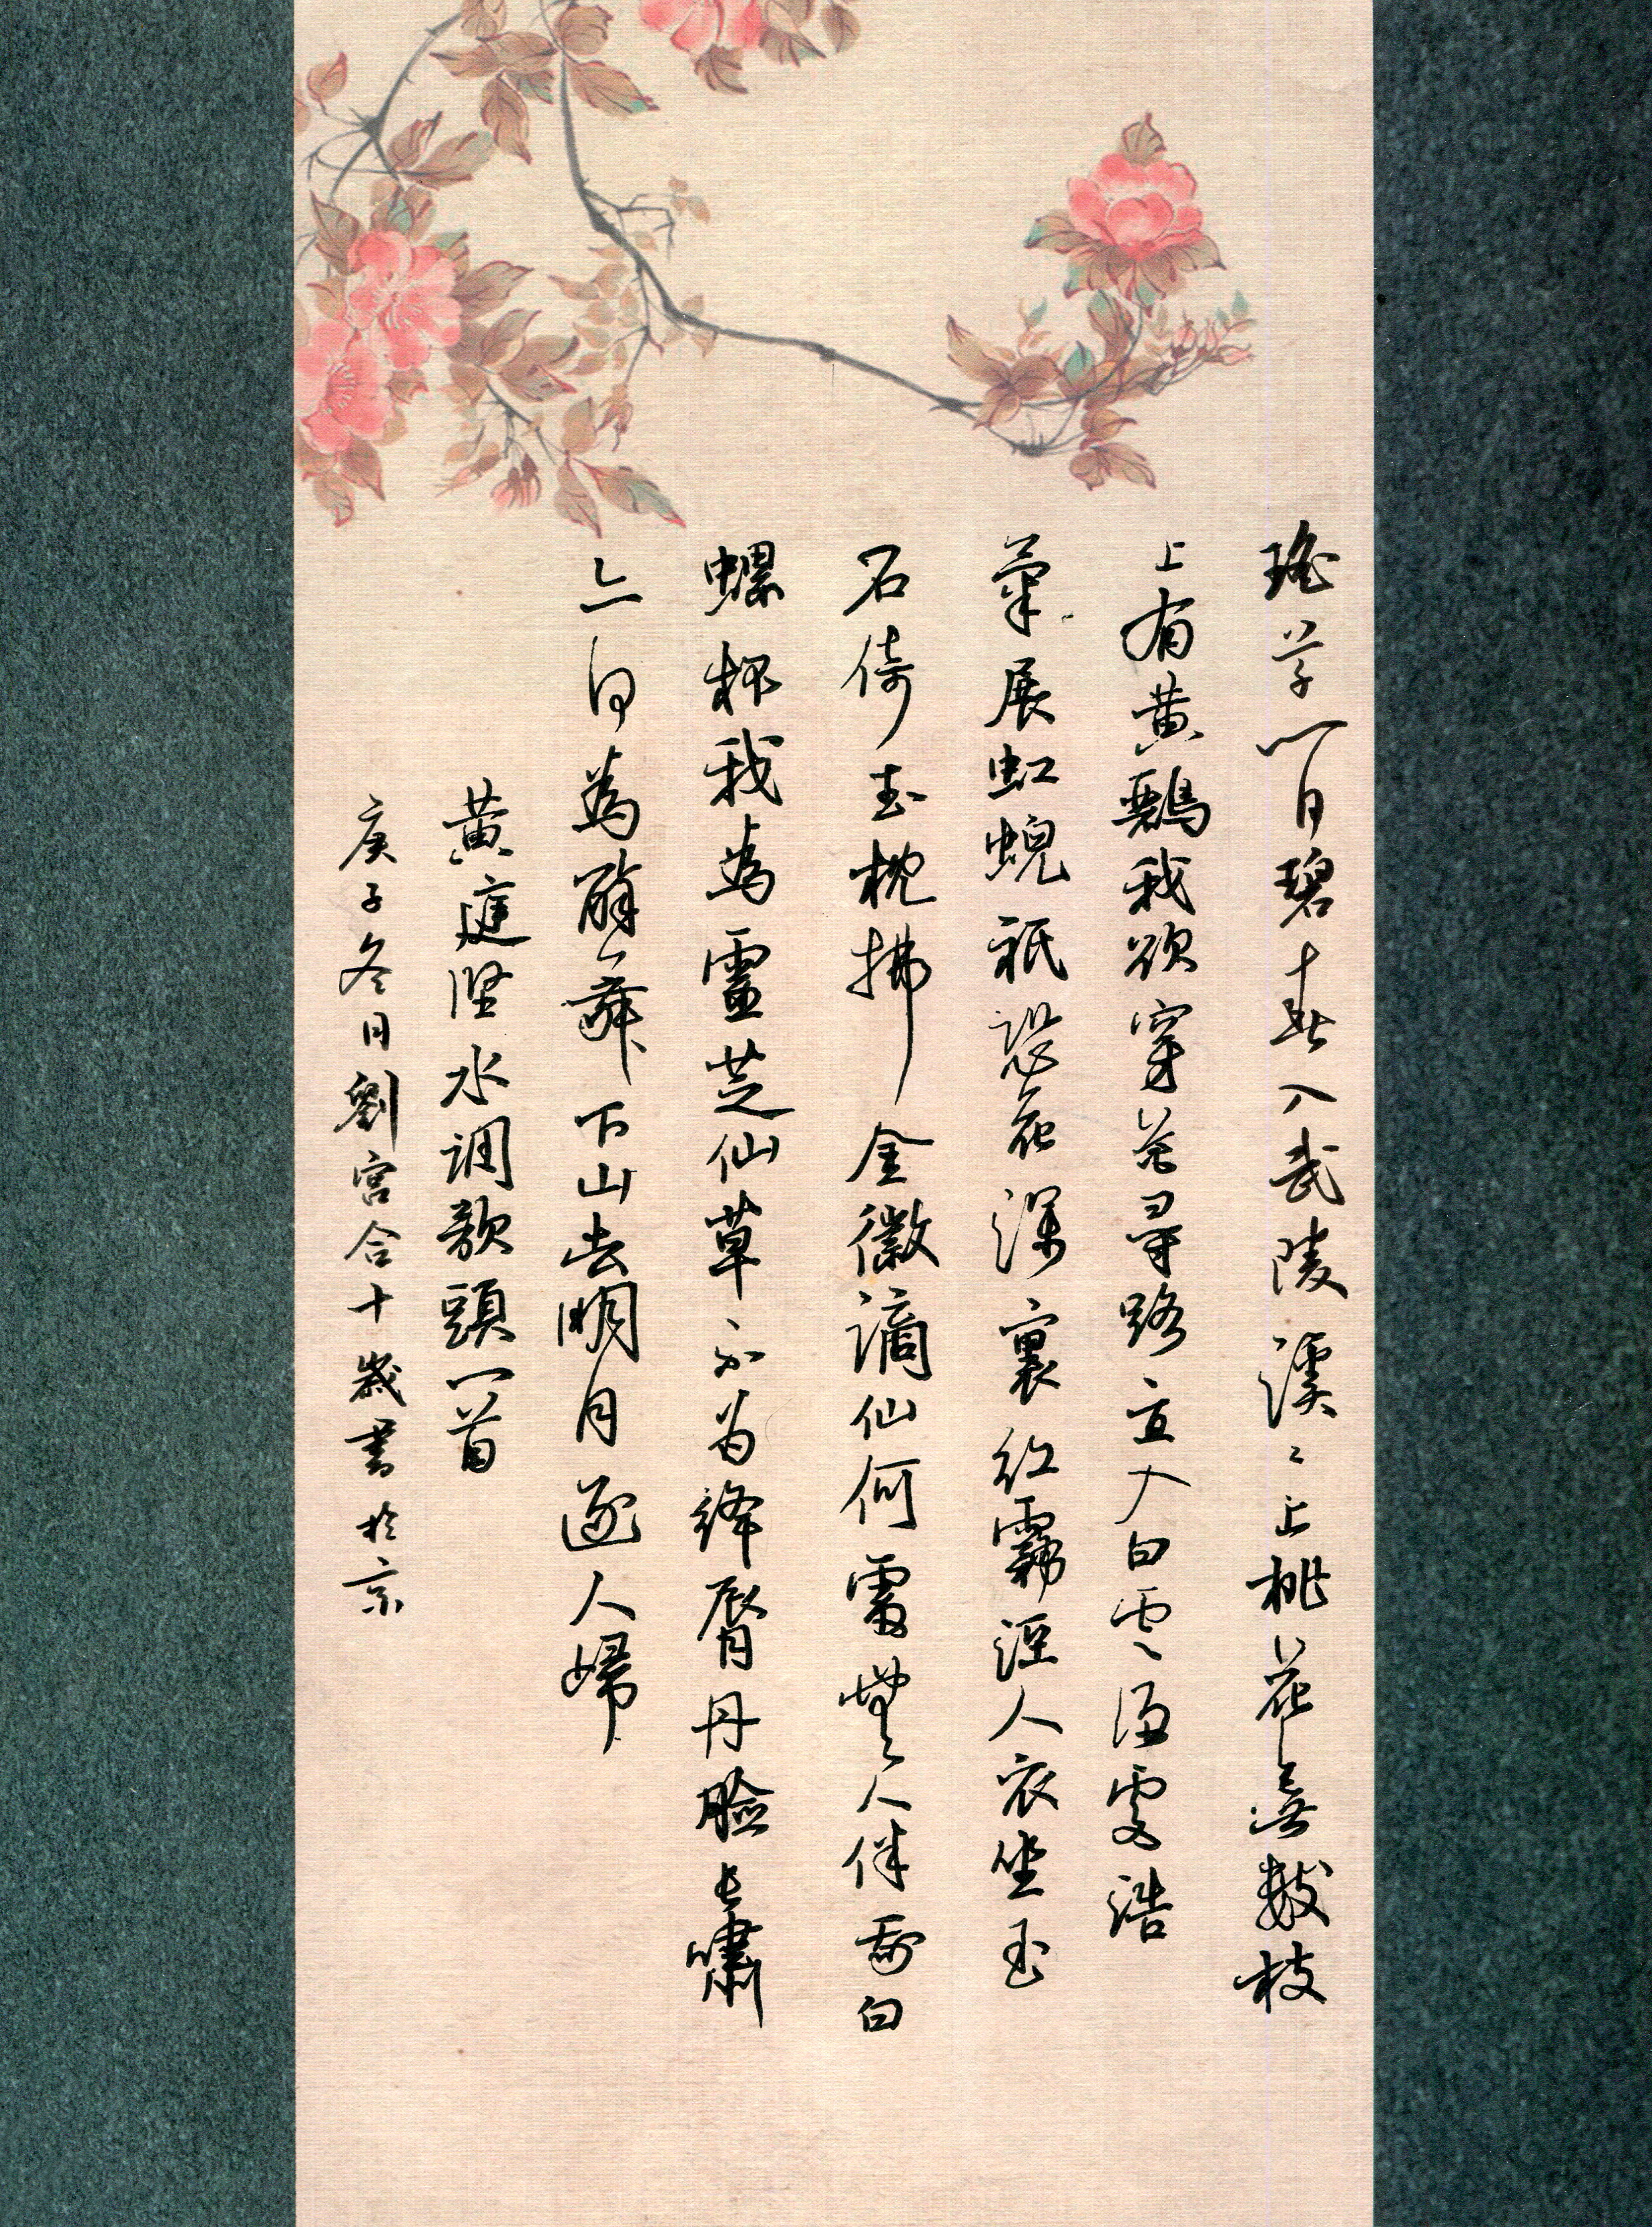 瑤草一何碧春入武陵溪〻上桃花無數枝
上有黄鸝我欲穿花尋路直入白雲深處浩
氣展虹蜺祇恐花深裏紅霧溼人衣坐玉
石倚玉枕拂金徽謫仙何處無人伴我白
螺杯我為靈芝仙草不为絳唇丹臉長嘯
亦何為醉舞下山去明月逐人歸
黄庭堅水调歌頭一首
庚子冬日劉宫合十歲書於京